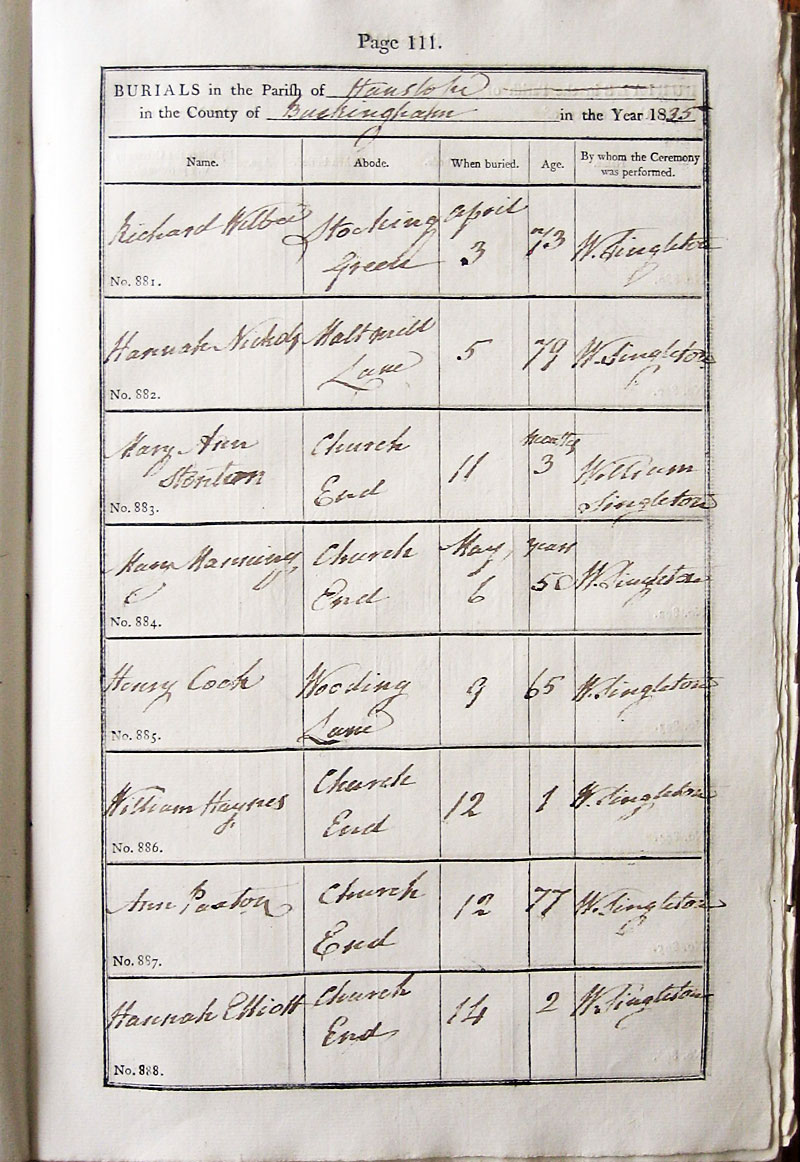 Page 111.
BURIALS in the Parish of Hanslope
in the County of Buckingham in the Year 1835
Name. Abode. When buried. Age. By whom the Ceremony was performed.
Richard Stocking April
Green 3 73 W. Singleton
No. 881.
Hannah Nichols Maltmill 5 79 W. Singleton
Lane
No. 882.
Mary Ann Church months
Stenton End 11 3 William
Singleton
No. 883.
Manning Church May years
End 6 50 W. Singleton
No. 884.
Henry Cook Wooding 9 65 W. Singleton
Lane
No. 885.
William Haynes Church 12 1 W. Singleton
End
No. 886.
Ann Paxton Church 12 77 W. Singleton
End
No. 887.
Hannah Elliott Church 14 2 W. Singleton
End
No. 888.